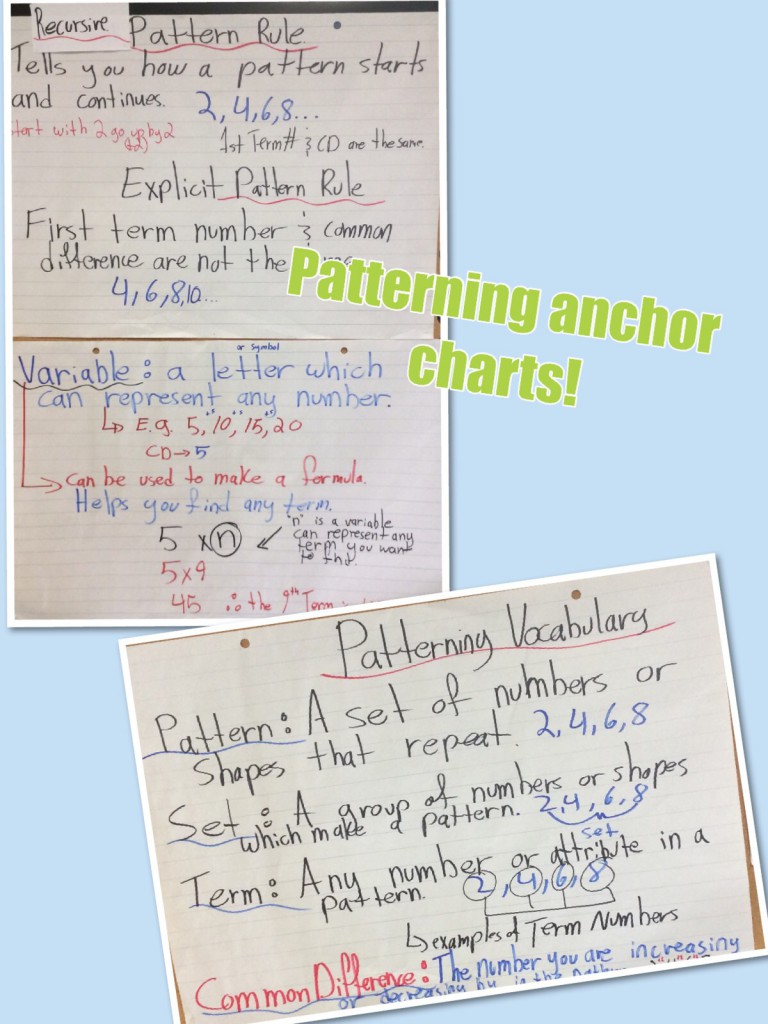 Recursive Pattern Rule
Tells you how a pattern starts
and continues. 2, 4, 6, 8...
start with 2 go up by 2
1st Term # & CD are the same.
Explicit Pattern Rule
First term number & common
difference are not the
4, 6, 8, 10...
Patterning anchor
charts!
or symbol
Variable: a letter which
can represent any number.
E.g. 5, 10, 15, 20
CD→5
can be used to make a formula.
Helps you find any term.
5 x n
"n" is a variable
can represent any
term you want
to find.
5x9
45 ∴ the 9th Term
Patterning Vocabulary
Pattern: A set of numbers or
shapes that repeat. 2, 4, 6, 8
Set: A group of numbers or shapes
which make a pattern. 2, 4, 6, 8
set
Term: Any number or attribute in a
pattern. 2, 4, 6, 8
examples of Term Numbers
Common Difference: The number you are increasing
or decreasing by in the pattern